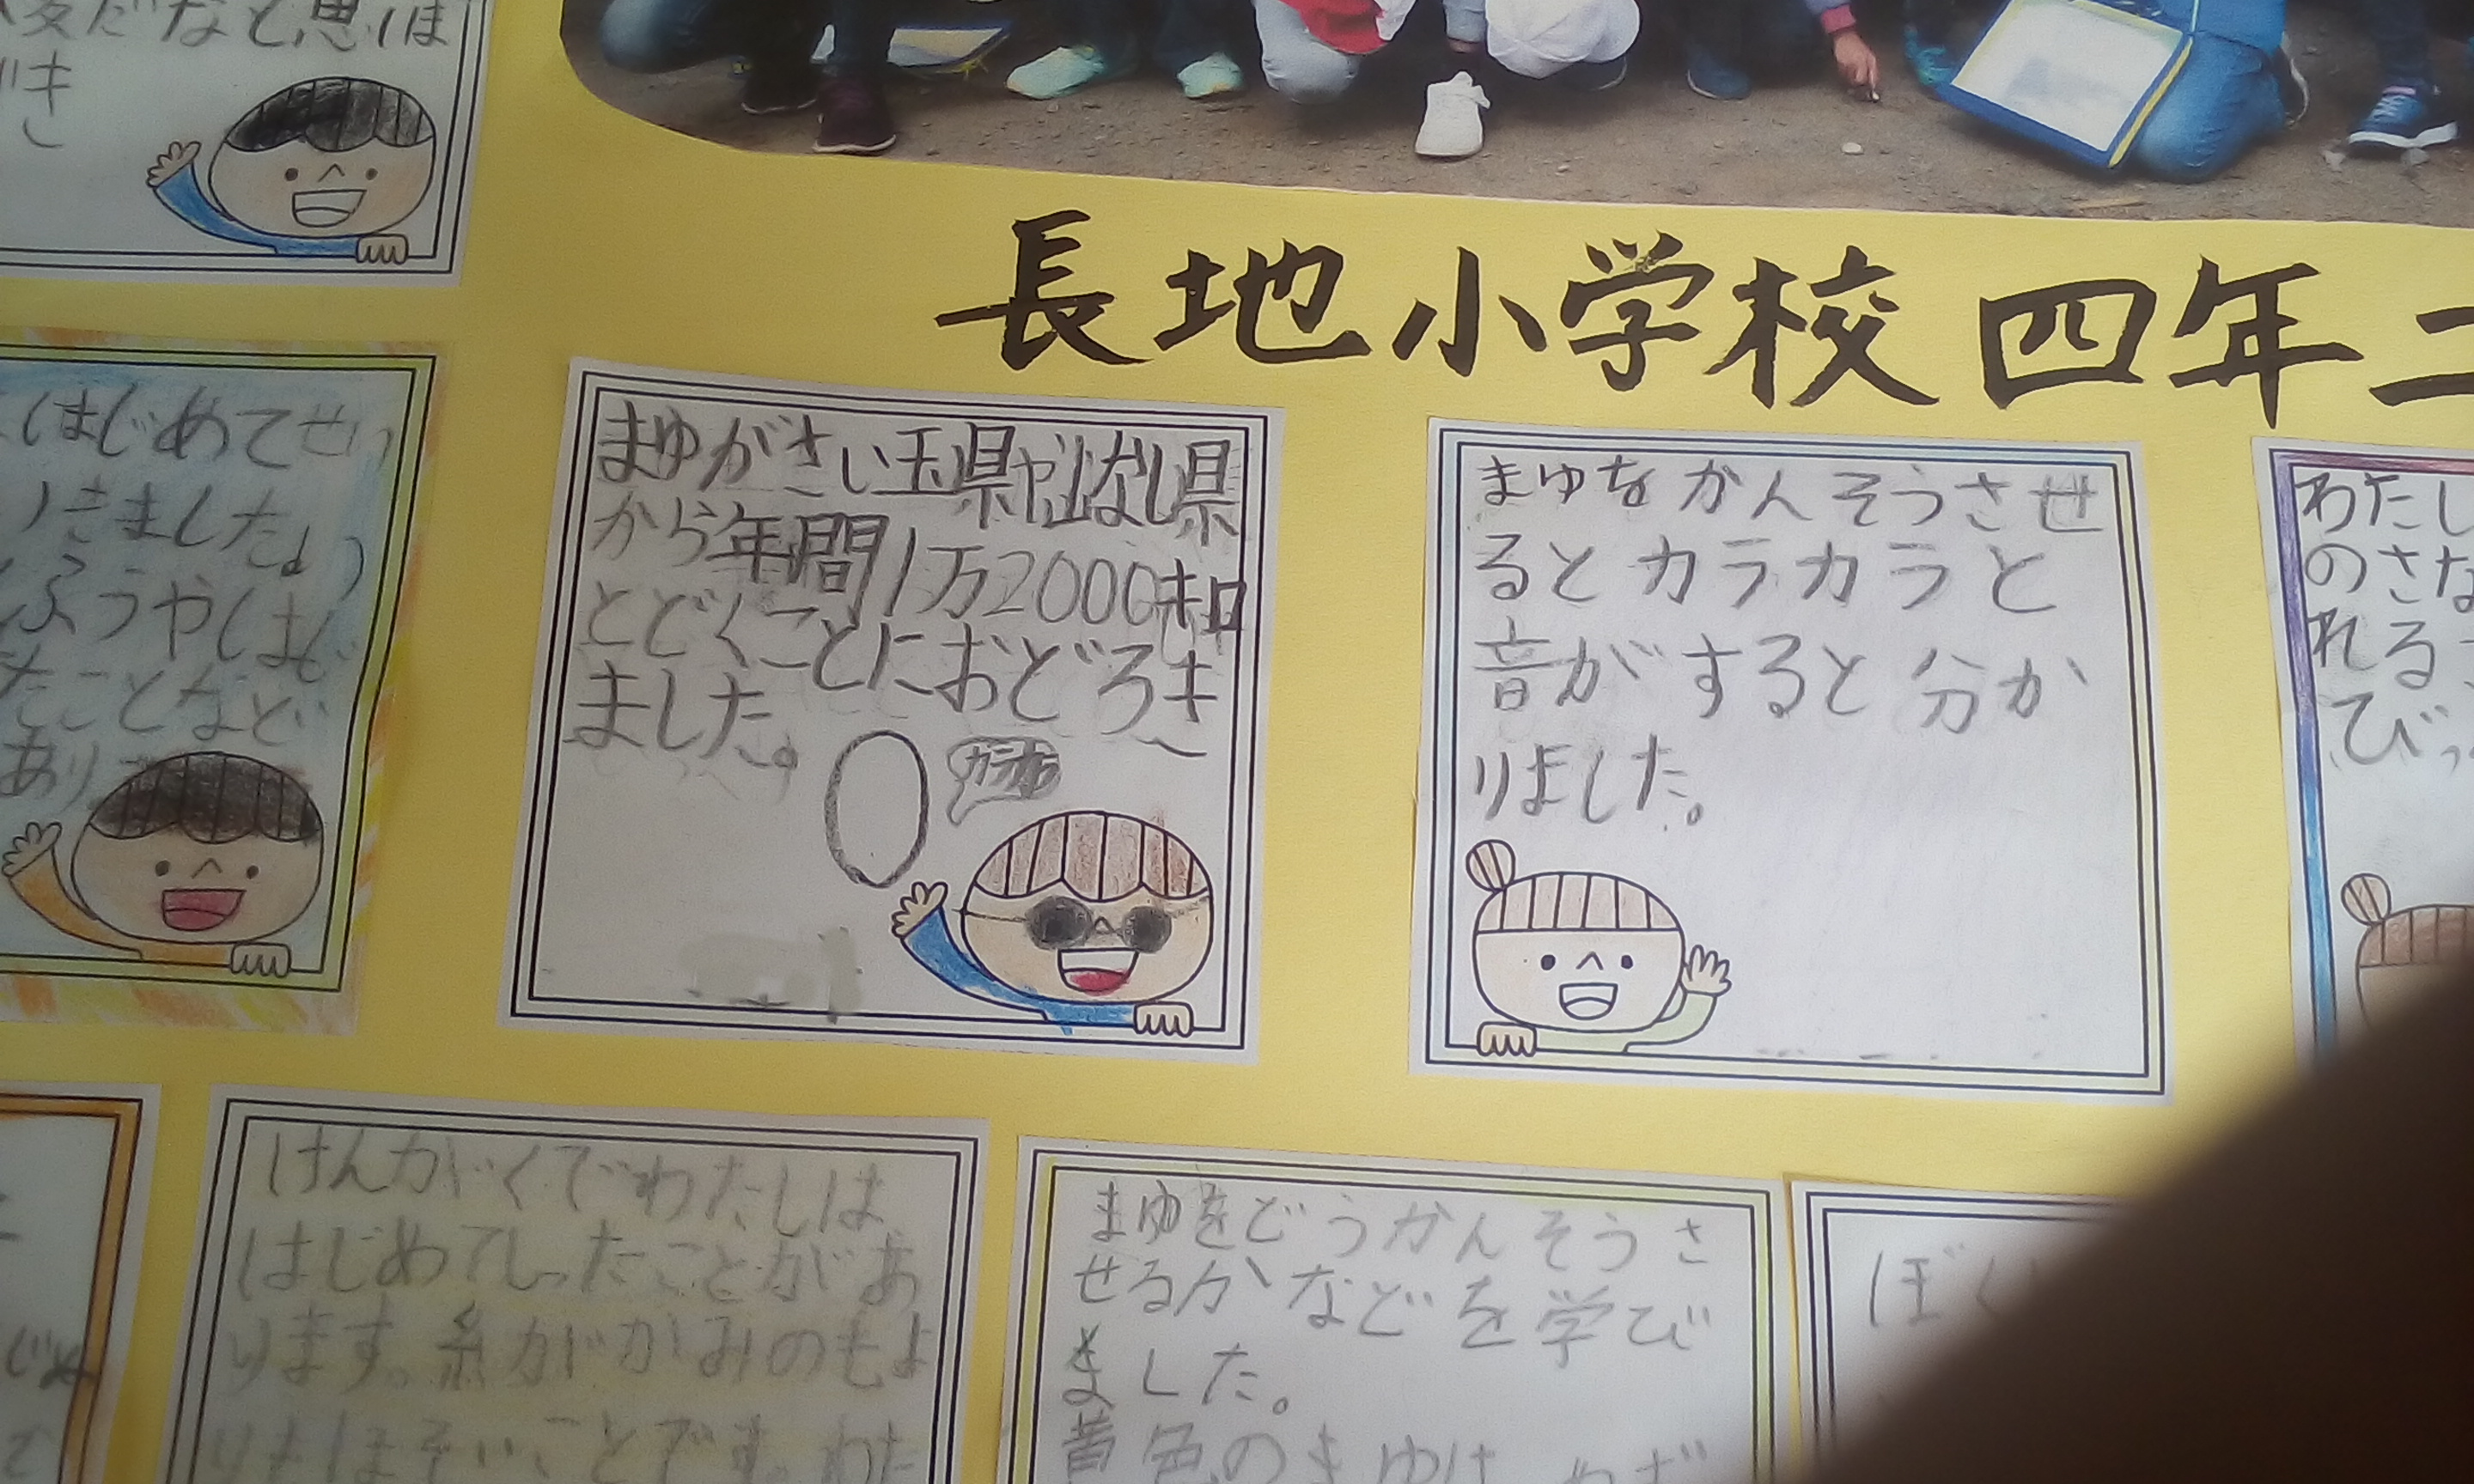 変だなと思は
長地小学校 四年二
はじめてせい
きました。
ふうやしはじ
たことなど
あり
まゆがさい玉県や山なし県
から年間1万2000キロ
とどくことにおどろき
ました。
まゆをかんそうさせ
るとカラカラと
音がすると分か
りました。
わたし
のさな
れる
びっ
けんがくでわたしは
はじめてしったことがあ
ります。糸がかみのもよ
りもほそいことです。わた
まゆをどうかんそうさ
せるかなどを学び
ました。
黄色のまゆは
ぼく